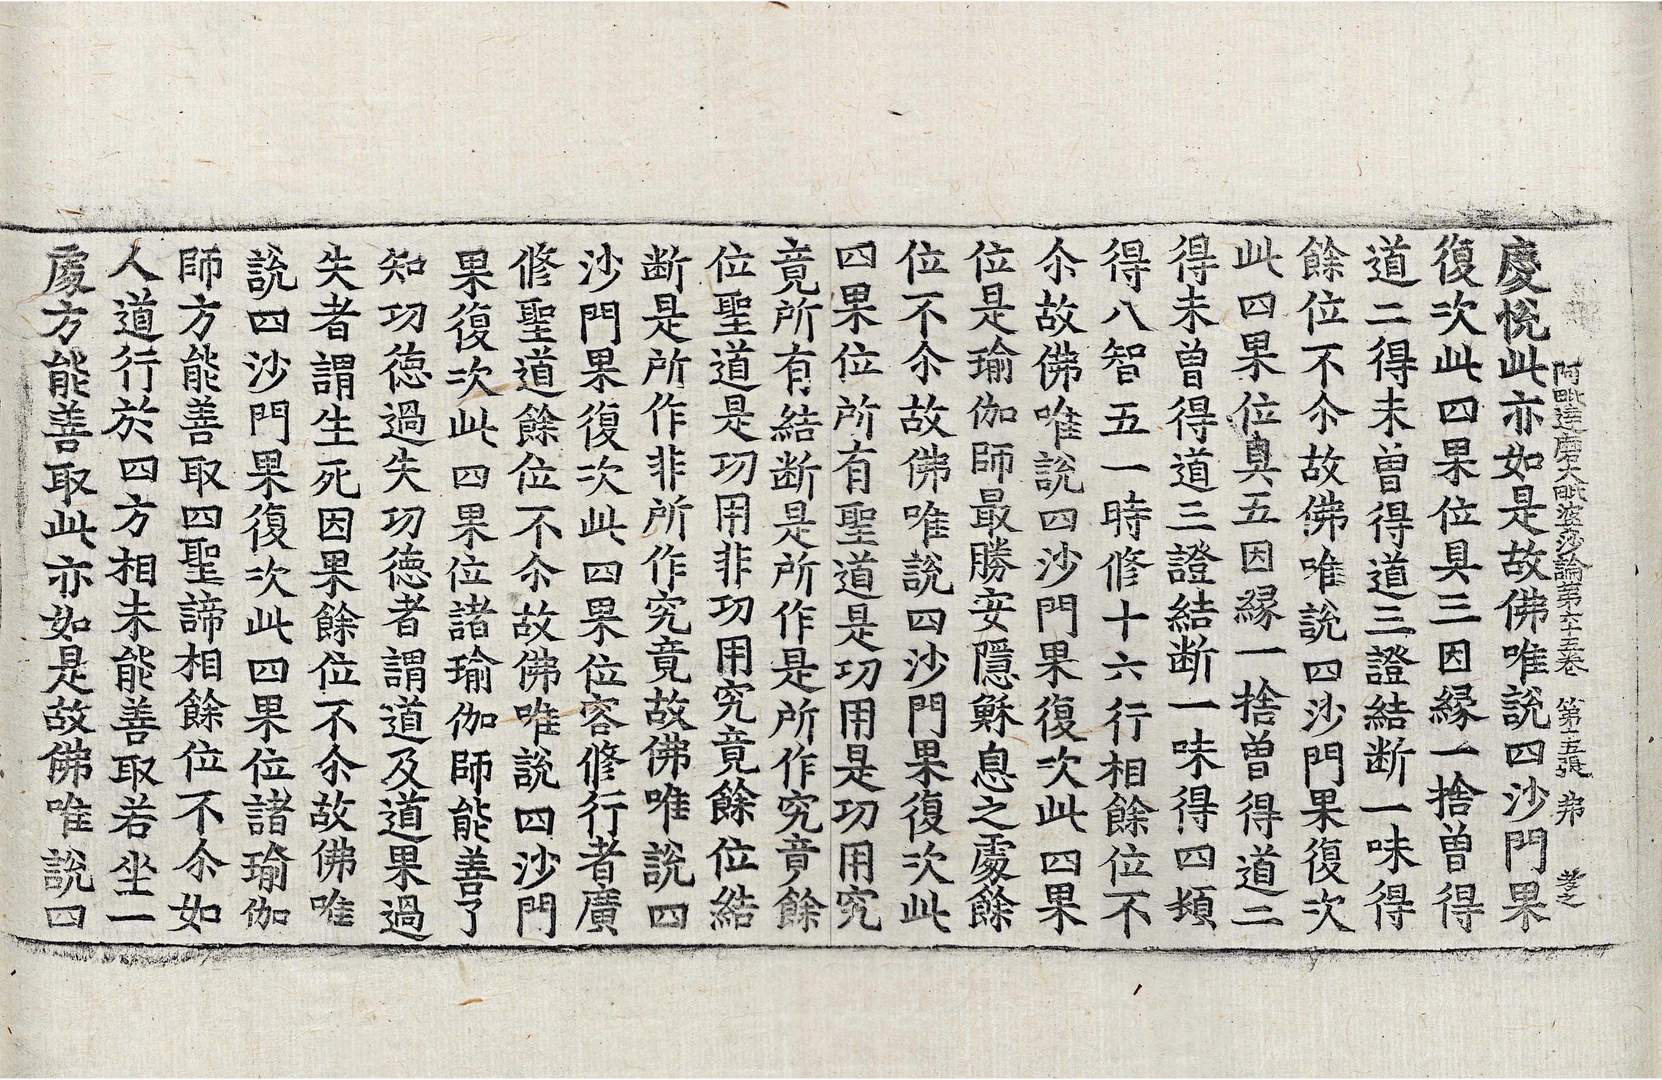 阿毗達磨大毗婆沙論第六十五卷 第十五張 弗
慶悅此亦如是故佛唯說四沙門果
復次此四果位具三因緣一捨曾得
道二得未曾得道三證結断一味得
餘位不尒故佛唯說四沙門果復次
此四果位具五因緣一捨曾得道二
得未曾得道三證結断一味得四頓
得八智五一時修十六行相餘位不
尒故佛唯說四沙門果復次此四果
位是瑜伽師最勝安隱穌息之處餘
位不尒故佛唯說四沙門果復次此
四果位所有聖道是功用是功用究
竟所有結断是所作是所作究竟餘
位聖道是功用非功用究竟餘位結
断是所作非所作究竟故佛唯說四
沙門果復次此四果位容修行者廣
修聖道餘位不尒故佛唯說四沙門
果復次此四果位諸瑜伽師能善了
知功德過失功德者謂道及道果過
失者謂生死因果餘位不尒故佛唯
說四沙門果復次此四果位諸瑜伽
師方能善取四聖諦相餘位不尒如
人道行於四方相未能善取若坐一
處方能善取此亦如是故佛唯說四